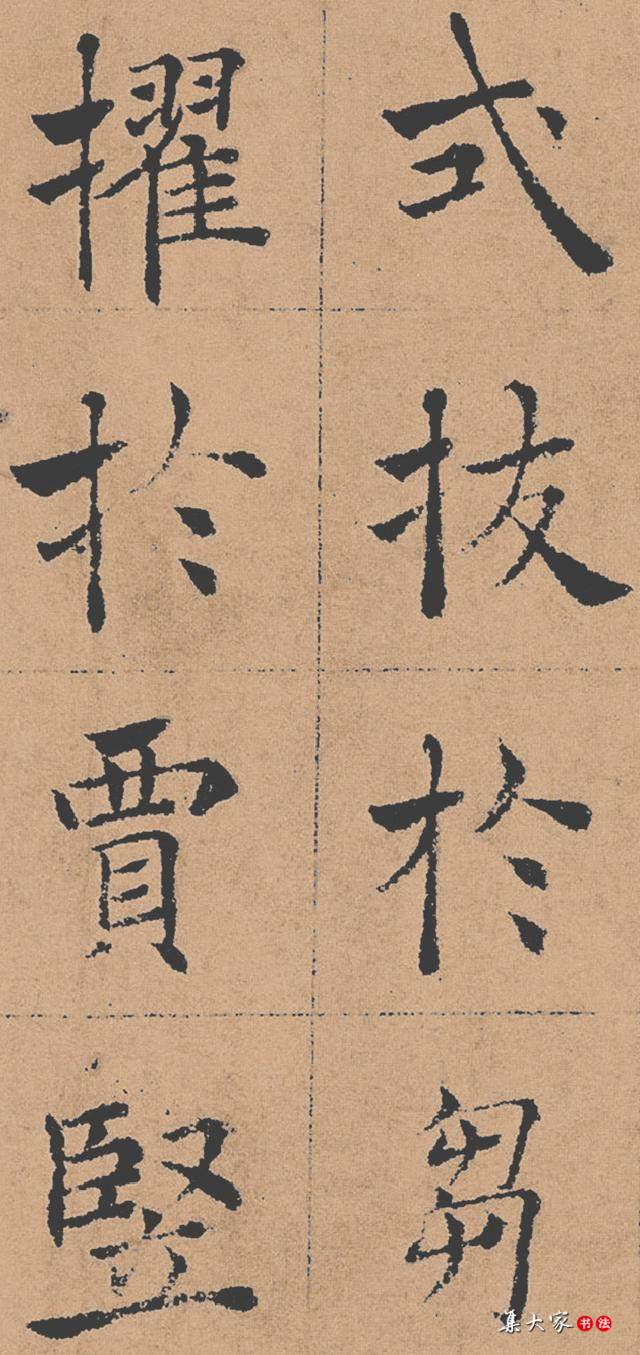 式拔於芻
擢於賈豎
集大家书法